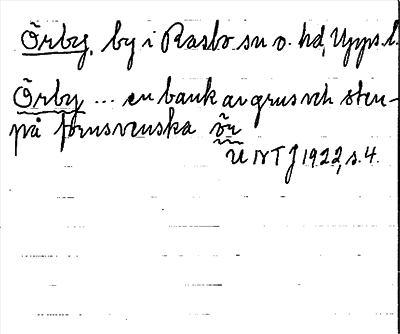 Örby, by i Rasbo sn o. hd, Upps. l.
Örby ... en bank av grus och sten -
på fornsvenska ör
UNTJ 1922, s. 4.